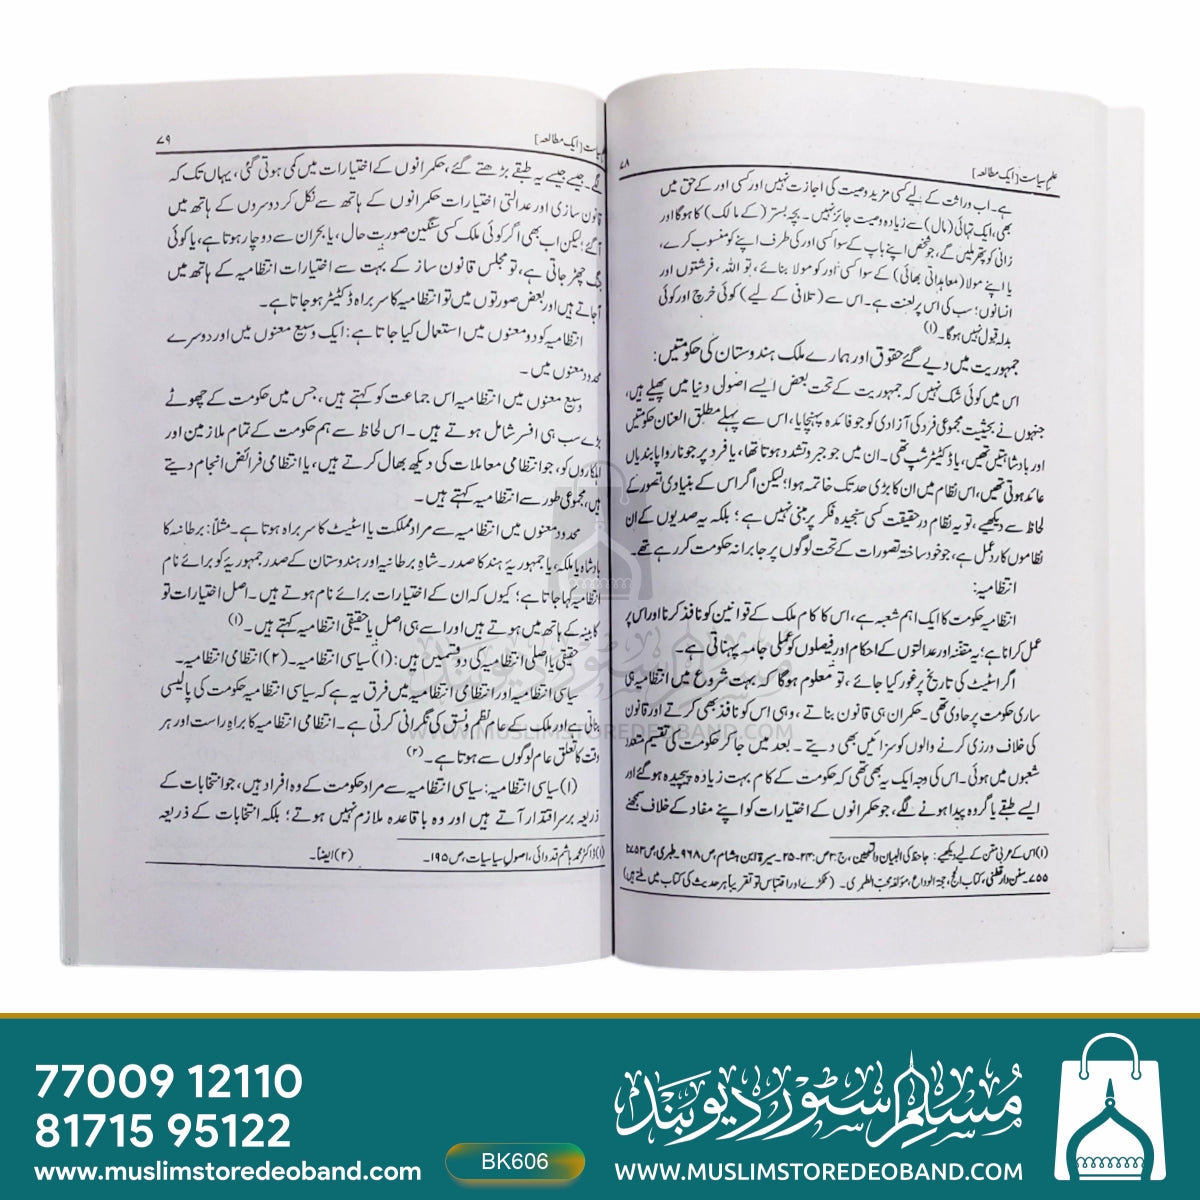 علم سیاست [ایک مطالعہ] ۷۸
ہے۔ اب وراثت کے لیے کسی مزید وصیت کی اجازت نہیں اور کسی اور کے حق میں
بھی، ایک تہائی (مال) سے زیادہ وصیت جائز نہیں۔ بچہ بستر (کے مالک) کا ہوگا اور
زانی کو پتھر ملیں گے، جو شخص اپنے باپ کے سوا کسی اور کی طرف اپنے کو منسوب کرے،
یا اپنے مولا (معاہداتی بھائی) کے سوا کسی اور کو مولا بنائے، تو اللہ، فرشتوں اور
انسانوں؛ سب کی اس پر لعنت ہے۔ اس سے (تلافی کے لیے) کوئی خرچ اور کوئی
بدلہ قبول نہیں ہوگا۔(۱)
جمہوریت میں دیے گئے حقوق اور ہمارے ملک ہندوستان کی حکومتیں:
اس میں کوئی شک نہیں کہ جمہوریت کے تحت بعض ایسے اصول دنیا میں پھیلے ہیں،
جنہوں نے بحیثیت مجموعی فرد کی آزادی کو جو فائدہ پہنچایا، اس سے پہلے مطلق العنان حکومتیں
اور بادشاہتیں تھیں، یا ڈکٹیٹر شپ تھی۔ ان میں جو جبر و تشدد ہوتا تھا، یا فرد پر جو ناروا پابندیاں
عائد ہوتی تھیں، اس نظام میں ان کا بڑی حد تک خاتمہ ہوا؛ لیکن اگر اس کے بنیادی تصور کے
لحاظ سے دیکھیے، تو یہ نظام درحقیقت کسی سنجیدہ فکر پر مبنی نہیں ہے؛ بلکہ یہ صدیوں کے ان
نظاموں کا ردعمل ہے، جو خود ساختہ تصورات کے تحت لوگوں پر جابرانہ حکومت کر رہے تھے۔
انتظامیہ:
انتظامیہ حکومت کا ایک اہم شعبہ ہے، اس کا کام ملک کے قوانین کو نافذ کرنا اور اس پر
عمل کرانا ہے؛ یہ مقننہ اور عدالتوں کے احکام اور فیصلوں کو عملی جامہ پہناتی ہے۔
اگر اسٹیٹ کی تاریخ پر غور کیا جائے، تو معلوم ہوگا کہ بہت شروع میں انتظامیہ ہی
ساری حکومت پر حاوی تھی۔ حکمران ہی قانون بناتے، وہی اس کو نافذ بھی کرتے اور قانون
کی خلاف ورزی کرنے والوں کو سزائیں بھی دیتے۔ بعد میں جا کر حکومت کی تقسیم متعدد
شعبوں میں ہوئی۔ اس کی وجہ ایک یہ بھی تھی کہ حکومت کے کام بہت زیادہ پیچیدہ ہوگئے اور
ایسے طبقے یا گروہ پیدا ہونے لگے، جو حکمرانوں کے اختیارات کو اپنے مفاد کے خلاف سمجھنے
(۱) اس کے عربی متن کے لیے دیکھیے: جاحظ کی البیان والتبیین، ج:۲ ص:۲۴-۲۵۔ سیرۃ ابن ہشام، ص۹۶۸، طبری، ص۱۷۵۳
۷۵۵۔ سنن دارقطنی، کتاب الحج، حجۃ الوداع، مؤلفہ محب الطبری۔ (ٹکڑے اور اقتباس تو تقریباً ہر حدیث کی کتاب میں ملتے ہیں)
سیاست [ایک مطالعہ] ۷۹
لگے۔ جیسے جیسے یہ طبقے بڑھتے گئے، حکمرانوں کے اختیارات میں کمی ہوتی گئی، یہاں تک کہ
قانون سازی اور عدالتی اختیارات حکمرانوں کے ہاتھ سے نکل کر دوسروں کے ہاتھ میں
آ گئے؛ لیکن اب بھی اگر کوئی ملک کسی سنگین صورتِ حال، یا بحران سے دوچار ہوتا ہے، یا کوئی
جنگ چھڑ جاتی ہے، تو مجلس قانون ساز کے بہت سے اختیارات انتظامیہ کے ہاتھ میں
آ جاتے ہیں اور بعض صورتوں میں تو انتظامیہ کا سربراہ ڈکٹیٹر ہو جاتا ہے۔
انتظامیہ کو دو معنوں میں استعمال کیا جاتا ہے: ایک وسیع معنوں میں اور دوسرے
محدود معنوں میں۔
وسیع معنوں میں انتظامیہ اس جماعت کو کہتے ہیں، جس میں حکومت کے چھوٹے
بڑے سب ہی افسر شامل ہوتے ہیں۔ اس لحاظ سے ہم حکومت کے تمام ملازمین اور
اہلکاروں کو، جو انتظامی معاملات کی دیکھ بھال کرتے ہیں، یا انتظامی فرائض انجام دیتے
ہیں، مجموعی طور سے انتظامیہ کہتے ہیں۔
محدود معنوں میں انتظامیہ سے مراد مملکت یا اسٹیٹ کا سربراہ ہوتا ہے۔ مثلاً: برطانیہ کا
بادشاہ یا ملکہ، یا جمہوریۂ ہند کا صدر۔ شاہِ برطانیہ اور ہندوستان کے صدر جمہوریہ کو برائے نام
انتظامیہ کہا جاتا ہے؛ کیوں کہ ان کے اختیارات برائے نام ہوتے ہیں۔ اصل اختیارات تو
کابینہ کے ہاتھ میں ہوتے ہیں اور اسے ہی اصل یا حقیقی انتظامیہ کہتے ہیں۔(۱)
حقیقی یا اصلی انتظامیہ کی دو قسمیں ہیں: (۱) سیاسی انتظامیہ۔ (۲) انتظامی انتظامیہ۔
سیاسی انتظامیہ اور انتظامی انتظامیہ میں فرق یہ ہے کہ سیاسی انتظامیہ حکومت کی پالیسی
بناتی ہے اور ملک کے عام نظم و نسق کی نگرانی کرتی ہے۔ انتظامی انتظامیہ کا براہِ راست اور ہر
وقت کا تعلق عام لوگوں سے ہوتا ہے۔(۲)
(۱) سیاسی انتظامیہ: سیاسی انتظامیہ سے مراد حکومت کے وہ افراد ہیں، جو انتخابات کے
ذریعہ برسر اقتدار آتے ہیں اور وہ باقاعدہ ملازم نہیں ہوتے؛ بلکہ انتخابات کے ذریعہ
(۱) ڈاکٹر محمد ہاشم قدوائی، اصولِ سیاسیات، ص۱۹۵۔ (۲) ایضاً۔
مسلم سٹور دیوبند
WWW.MUSLIMSTOREDEOBAND.COM
77009 12110
81715 95122
www.muslimstoredeoband.com
BK606
مسلم سٹور دیوبند
WWW.MUSLIMSTOREDEOBAND.COM